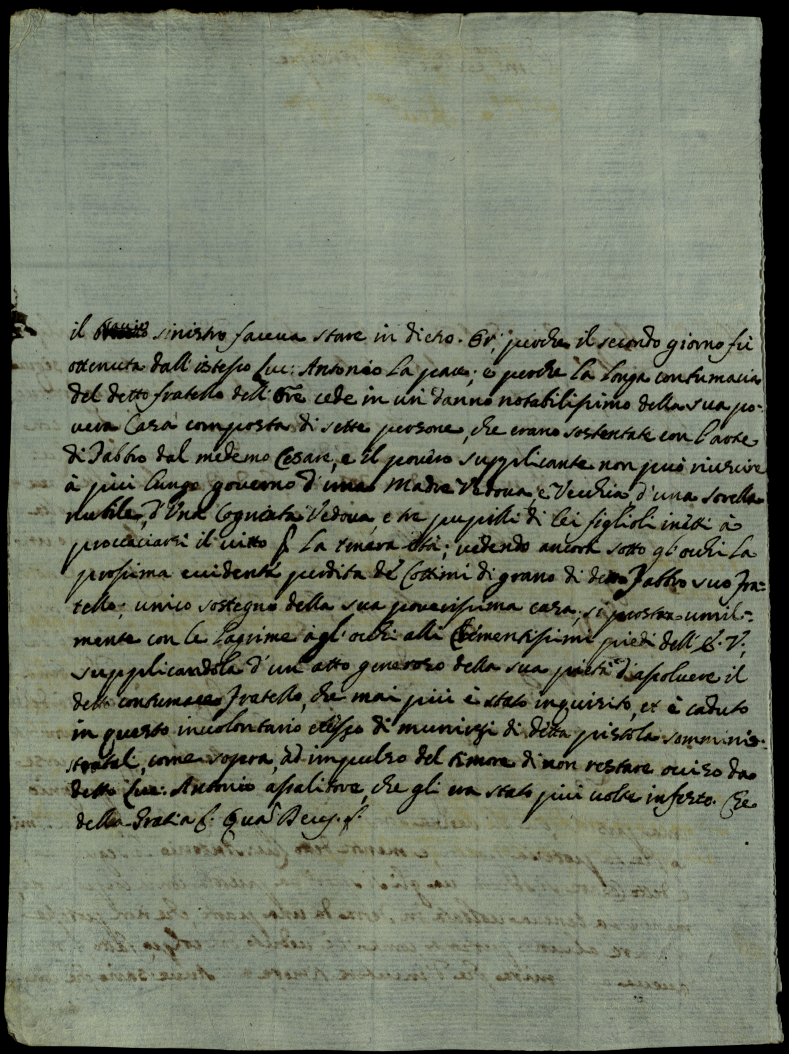 il sinistro faceva stare in dietro. Et perche il secondo giorno fù
ottenuta dall'istesso Luc: Antonio La pace; e perche la longa contumacia
del detto fratello dell'Ore cede in un danno notabilissimo della sua po-
vera Casa composta di sette persone, che erano sostentate con l'arte
di Fabbro dal medemo Cesare, e il povero supplicante non può riuscire
à più lungo governo d'una Madre Vedova, e Vecchia, d'una sorella
nubile, d'una Cognata Vedova, e tre pupilli di lei figlioli inetti à
procacciarsi il vitto p La tenera età; vedendo ancora sotto gl'occhi La
prossima evidente perdita de Cottimi di grano di detto Fabbro suo Fra-
tello; unico sostegno della sua poverissima casa; si prostra umil-
mente con le Lagrime àgl'occhi alli Clementissimi piedi dell'E. V.
supplicandola d'un atto generoso della sua pietà d'assolvere il
detto contumace Fratello, che mai più è stato inquisito, et è caduto
in questo involontario eccesso di munirsi di detta pistola somminis-
tratali, come sopra, ad impulso del timore di non restare occiso da
detto Luc: Antonio assalitore, che gli era stato più volte infesto. Che
della Gratia &. Quam Deus. &.